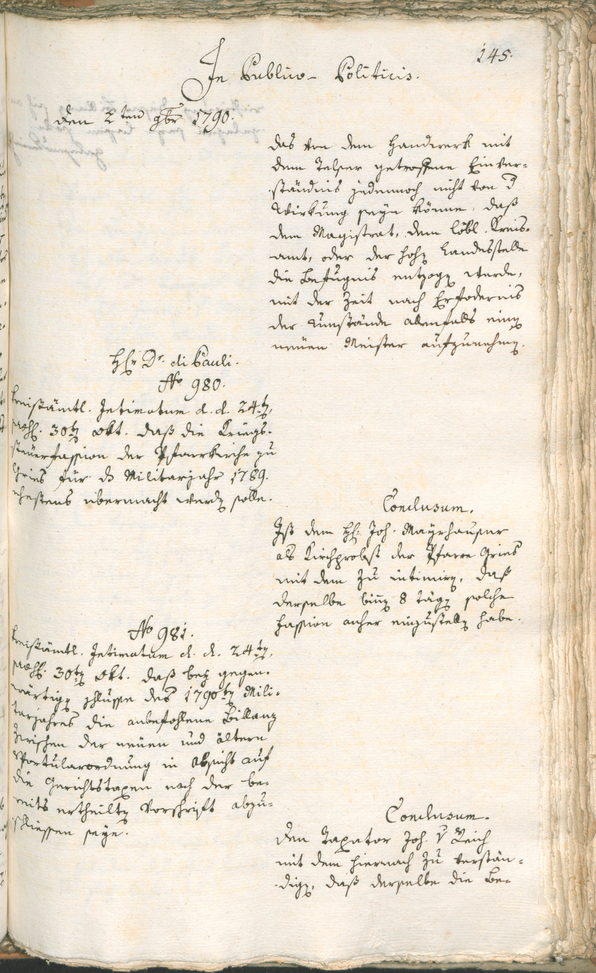 145.
In Publico-Politicis.
den 2ten 9br 1790.
das von dem Handwerk mit
dem Telser getroffene Einver-
ständnis jedennoch nicht von d
Wirkung seyn könne, daß
dem Magistrat, dem löbl. Kreis-
amt, oder der hohn Landesstelle
die Befugnis entzogn wurde,
mit der Zeit nach Erfodernis
der Umstände allenfalls einn
neuen Meister aufzunehmn.
Hr Dr. di Pauli.
No 980.
Kreisämtl. Intimatum d. d. 24tn,
30tn Okt. daß die Kriegs-
steuerfassion der Pfarrkirche zu
Gries für ds Militarjahr 1789.
ehestens übermacht werdn solle.
Conclusum.
Ist dem Hr Joh. Mayrhauser
als Kirchprobst der Pfarre Gries
mit dem zu intimirn, daß
derselbe binn 8 tägn solche
Fassion anher einzustelln habe.
No 981.
Kreisämtl. Intimatum d. d. 24tn,
30tn Okt. daß bey gegen-
wärtign schlusse des 1790tn Mili-
tarjahres die anbefohlene Billanz
zwischen der neuen und ältern
Sportularordnung in Absicht auf
die Gerichtstaxen nach der be-
reits ertheiltn Vorschrift abzu-
schliessen seye.
Conclusum.
Den Taxator Joh. v Reich
mit dem hiernach zu verstän-
dign, daß derselbe die Be-